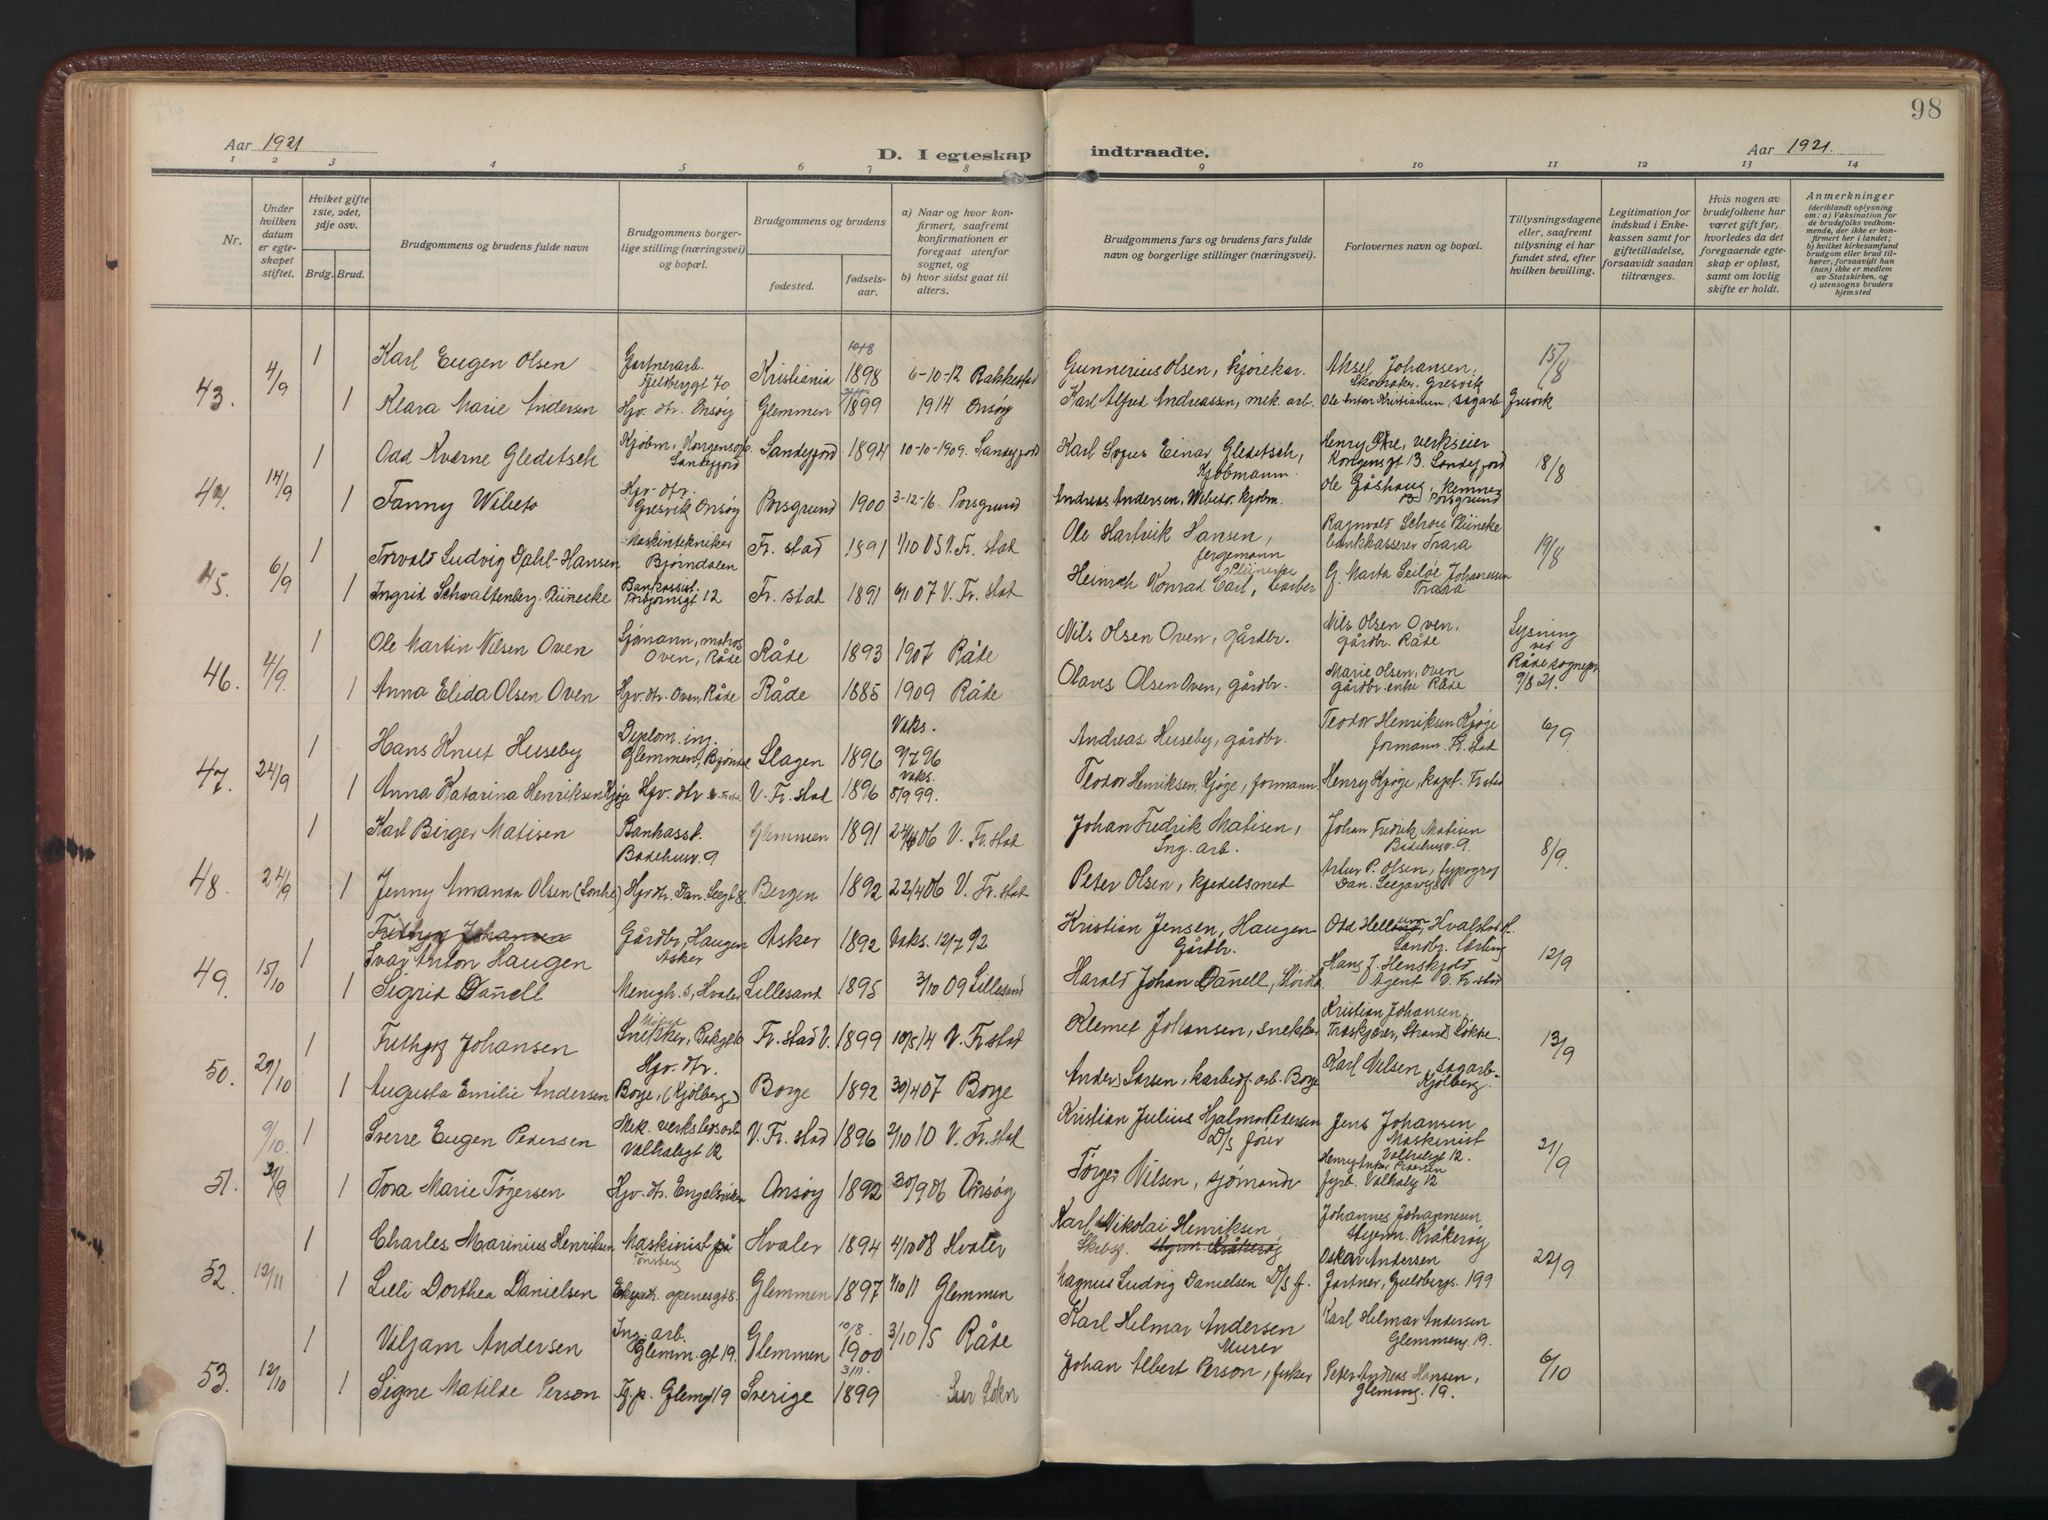 98
Aar 1921
D. I egteskap indtraadte.
Aar 1921.
1 2 3 4 5 6 7 8 9 10 11 12 13 14
Nr.
Under hvilken datum er egteskapet stiftet.
Hviket gifte 1ste, 2det, 3dje osv.
Brdg. Brud.
Brudgommens og brudens fulde navn
Brudgommens borgerlige stilling (næringsvei) og bopæl.
Brudgommens og brudens
fødested. fødselsaar.
a) Naar og hvor konfirmert, saafremt konfirmationen er foregaat utenfor sognet, og
b) hvor sidst gaat til alters.
Brudgommens fars og brudens fars fulde navn og borgerlige stillinger (næringsvei).
Forlovernes navn og bopæl.
Tillysningsdagene eller, saafremt tillysning ei har fundet sted, efter hvilken bevilling.
Legitimation for indskud i Enkekassen samt for giftetilladelse, forsaavidt saadan tiltrænges.
Hvis nogen av brudefolkene har været gift før, hvorledes da det foregaaende egteskap er opløst, samt om lovlig skifte er holdt.
Anmerkninger
(deriblandt oplysning om: a) Vaksination for de brudefolks vedkommende, der ikke er konfirmert her i landet; b) hvilket kirkesamfund brudgom eller brud tilhører, forsaavidt han (hun) ikke er medlem av Statskirken, og c) utensogns bruders hjemsted
43. 4/9 1 Karl Eugen Olsen Gartnerarb. Kristiania 1898 6-10-12 Rakkestad Gunnerius Olsen, kjørekar. Aksel Johansen, Skomaker, Gresvik 15/8
1 Klara Marie Andersen Hjv. dtr. Onsøy Glemmen 1899 1914 Onsøy Karl Alfred Andreassen, mek. arb. Ole Anton Kristiansen, sagarb. Gresvik
44. 14/9 1 Odd Kverne Gleditsch Kjøbm. Sandefjord Sandefjord 1894 10-10-1909. Sandefjord Karl Einar Gleditsch, Kjøbmann. Henry verkseier Kongensgt 13. Sandefjord 18/8
1 Fanny Wibeto Hjv. dtr. Gresvik Onsøy Porsgrund 1900 3-12-16. Porsgrund Andreas Andersen, Wibeto, kjøbm. Ole Gåshaug, Kemner Porsgrund
45. 6/9 1 Torvald Ludvig Dahl-Hansen Maskintekniker Bjørndalen Fr. stad 1891 1/10 05 V. Fr. stad Ole Hartvik Hansen, fergemann Ragnvald Schou bankkasserer Trara 19/8
1 Ingrid Bankassist. 12 Fr. stad 1891 07 V. Fr. stad Konrad Carl, barber Marta Johannessen Trara
46. 4/9. 1 Ole Martin Nilsen Oven Sjømann, matros Oven, Råde Råde 1893 1907 Råde Nils Olsen Oven, gårdbr. Nils Olsen Oven, gårdbr. Råde Lysning ved Råde sognepr. 9/8 21.
1 Anna Elida Olsen Oven Hjv. dtr. Oven Råde Råde 1885 1909 Råde Olaves Olsen Oven, gårdbr. Marie Olsen, Oven gårdbr. enke Råde
47. 24/9 1 Hans Knut Huseby Diplom. ing. Glemmen, Slagen 1896 Vaks. 9/7 96 Andreas Huseby, gårdbr. Teodor Henriksen Kjøge formann. Fr. stad 6/9
1 Anna Katarina Henriksen Kjøge Hjv. dtr V. Fr. stad 1896 vaks. 8/9 99. Teodor Henriksen, Kjøge, formann Henry Kjøge, kapt. Fr. stad
48. 24/9 1 Karl Birger Matisen Bankasst. Badehusv. 9 Glemmen 1891 06 V. Fr. stad Johan Fredrik Matisen, Ing. arb. Johan Fredrik Matisen Badehusv. 9. 8/9.
1 Jenny Amanda Olsen Hjv dtr. Bergen 1892 22/4 06 V. Fr. stad Peter Olsen, kjedelsmed Artur P. Olsen, typograf
49. 15/10 1 Fritjof Johansen Ivar Anton Haugen Gårdbr, Haugen Asker Asker 1892 Vaks. 12/7 92 Kristian Jensen, Haugen Gårdbr. Odd 12/9
1 Sigrid Danell Menigh. s, Hvaler Lillesand 1895 3/10 09 Lillesand Harald Johan Danell, Hans J. Henskjold Agent V. Fr. stad
50. 29/10 1 Frithjof Johansen Snekker, Fr. stad V. 1899 10/5 14 V. Fr. stad Klemet Johansen, snekker Kristian Johansen, 13/9
1 Augusta Emilie Andersen Hjv. dtr. Borge, (Kjølberg) Borge 1892 30/4 07 Borge Anders Larsen, Borge Karl Nilsen, sagarb. Kjølberg.
51. 9/10. 1 Sverre Eugen Pedersen Mek. verkstedsarb Valhalsgt 12 V. Fr. stad 1896 2/10 10 V. Fr. stad Kristian Julius Hjalmar Pedersen D/S fører Jens Johansen Maskinist Valhalsgt 12. 21/9
1 Tora Marie Tøgersen Hjv. dtr. Engelsviken Onsøy 1892 30/9 06 Onsøy Tørger Nilsen, sjømand Pedersen fyrb. Valhalsg 12
52. 12/11 1 Charles Marinius Henriksen Maskinist på Tønsberg Hvaler 1894 4/10 08 Hvaler Karl Nikolai Henriksen Styrm. Kråkerøy Johannes Johannesen Styrm. Kråkerøy 22/9
1 Lilli Dorthea Danielsen Glemmen 1897 1/10 11 Glemmen Magnus Ludvig Danielsen D/S f. Oskar Andersen Gartner, 199
53. 12/10 1 Viljam Andersen Ing. arb. Glemm. gt 19. Glemmen 10/8. 1900 3/10 15 Råde Karl Hilmar Andersen Murer Karl Hilmar Andersen Glemmeng. 19. 6/10
1 Signe Matilde Person Glemg 19 Sverige 3/11. 1899 Johan Albert Person, fisker Peter Andreas Hansen, Glemmg. 19.